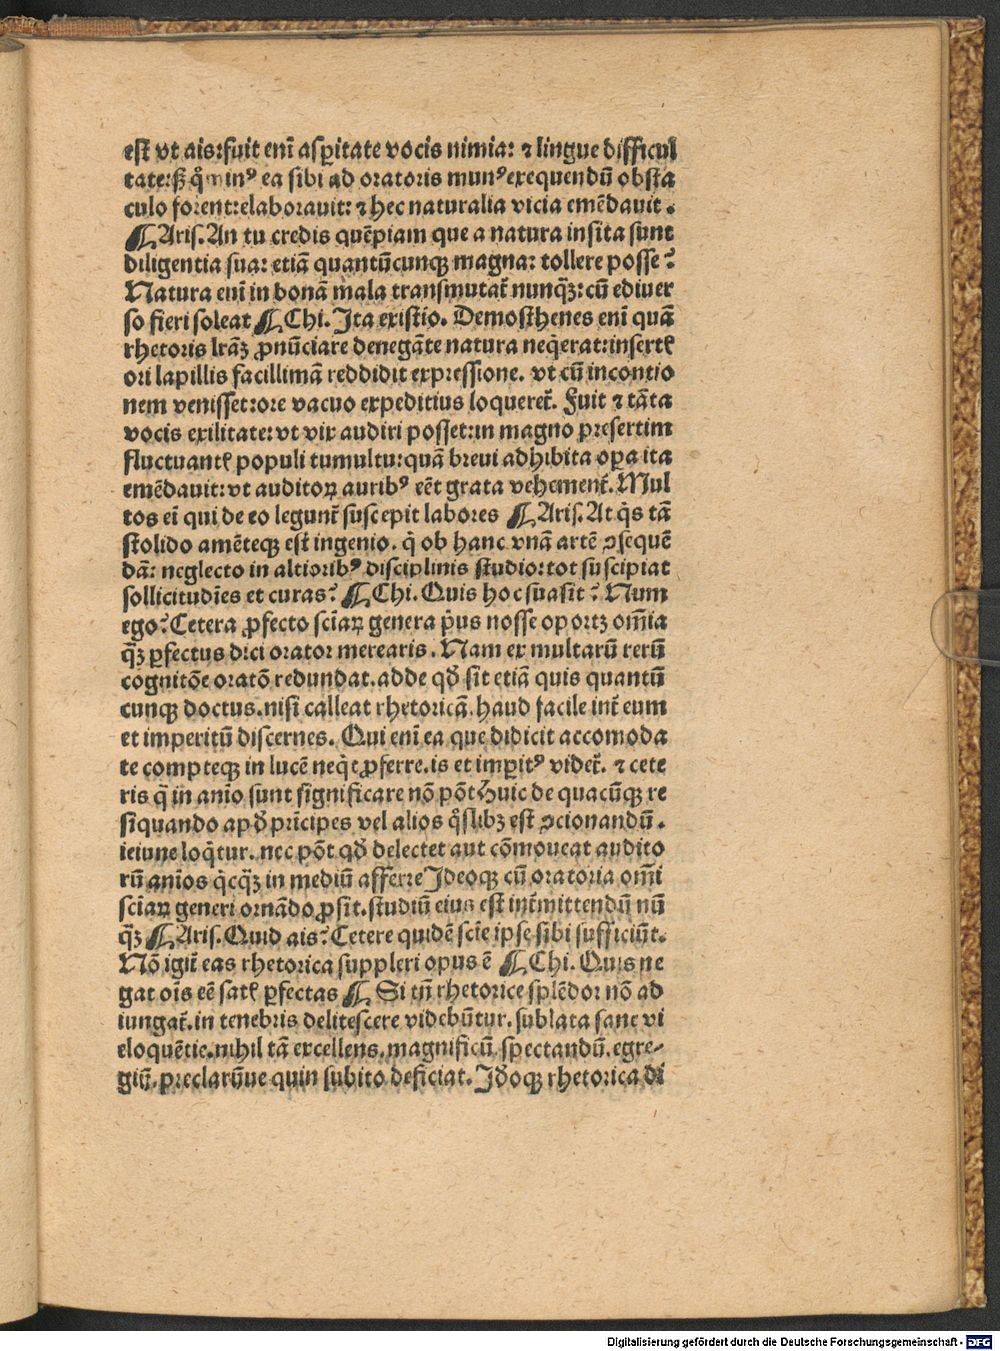 est vt ais:fuit eni͂ asp̱itate vocis nimia: ⁊ lingue difficul
tate:ſʒ q̊ minꝰ ea sibi ad oratoris munꝰ exequendū obsta
culo forent:elaborauit: ⁊ hec naturalia vicia emēdauit.
¶ Aris. An tu credis quēpiam que a natura insita sunt
diligentia sua: etiā quantūcunqꝫ magna: tollere posse?
Natura eni͂ in bonā mala transmutat᷑ nunqꝫ̃: cū ediuer
so fieri soleat ¶ Chi. Ita existio. Demosthenes eni͂ quā
rhetoris lr̄aꝫ ꝓnūciare denegāte natura neq̇erat:insertꝭ
ori lapillis facillimā reddidit expressione. vt cū incontio
nem venisset:ore vacuo expeditius loqueret᷑. Fuit ⁊ tāta
vocis exilitate:vt vix audiri posset:in magno presertim
fluctuantꝭ populi tumultu:quā breui adhibita oꝑa ita
emēdauit:vt auditoꝝ auribꝰ eēt grata vehement᷑. Mul
tos ei͂ qui de eo legunt᷑ suscepit labores ¶ Aris. At q̇s tā
stolido amēteqꝫ est ingenio. q̇ ob hanc vnā artē ꝯsequē
dā: neglecto in altioribꝰ disciplinis studio:tot suscipiat
sollicitudīes et curas? ¶ Chi. Quis hoc suasit? Num
ego? Cetera ꝓfecto sciaꝝ genera p̓us nosse oportꝫ om̄ia
qꝫ̃ ꝑfectus dici orator merearis. Nam ex multarū rerū
cognitōe oratō redundat. adde qđ sit etiā quis quantū
cunqꝫ doctus. nisi calleat rhetoricā. haud facile int᷑ eum
et imperitū discernes. Qui eni͂ ea que didicit accomoda
te compteqꝫ in lucē neq̇t ꝓferre. is et imꝑitꝰ videt᷑. ⁊ cete
ris q̄ in anīo sunt significare nō pōt. Huic de quacūqꝫ re
siquando apđ prīcipes vel alios q̊slibꝫ est ꝯcionandū.
ieiune loq̇tur. nec pōt qđ delectet aut cōmoueat audito
rū anīos q̇cqꝫ̃ in mediū afferre Ideoqꝫ cū oratoria om̄i
sciaꝝ generi ornādo ꝓsit. studiū eius est int᷑mittendū nū
qꝫ̃ ¶ Aris. Quid ais? Cetere quidē scīe ipse sibi sufficiūt.
Nō igit᷑ eas rhetorica suppleri opus ē ¶ Chi. Quis ne
gat oīs eē satꝭ ꝑfectas ¶ Si tn̄ rhetorice splēdor nō ad
iungat᷑. in tenebris delitescere videbūtur. sublata sane vi
eloquētie. nihil tā excellens. magnificū. spectandū. egre-
giū. preclarūue quin subito deficiat. Iđoqꝫ rhetorica di
Digitalisierung gefördert durch die Deutsche Forschungsgemeinschaft - DFG